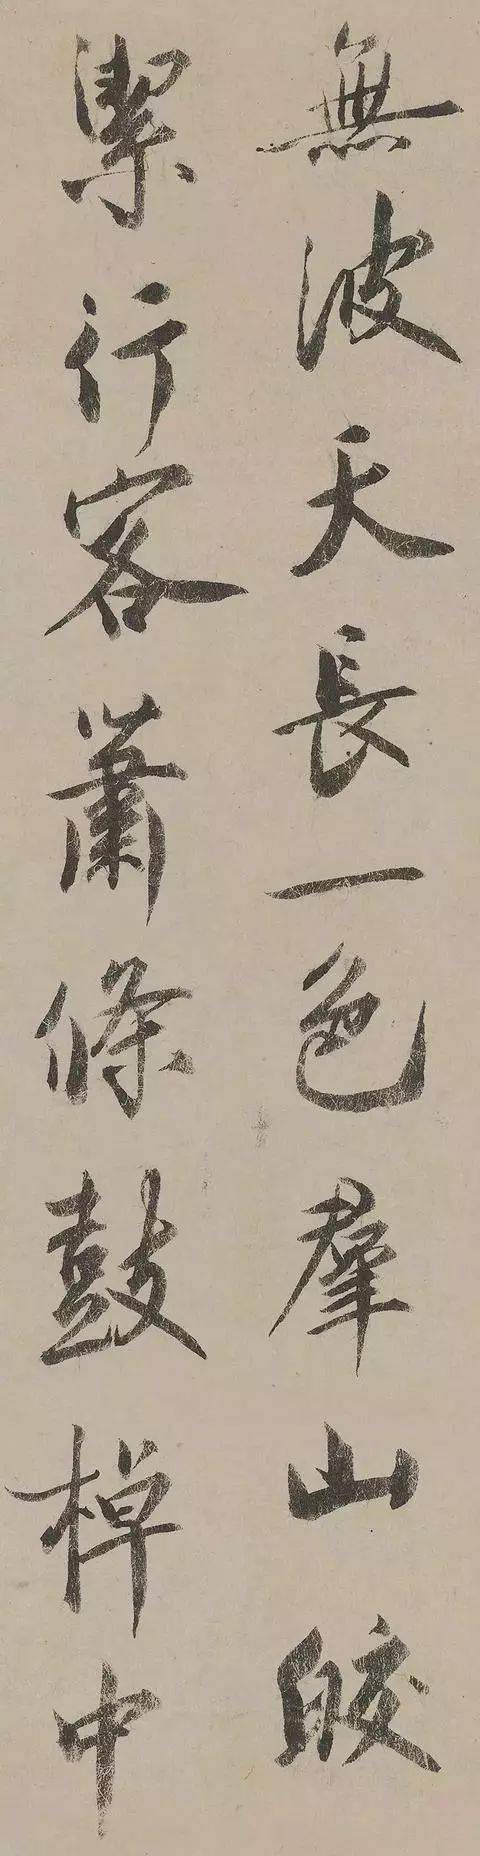 無波天長一色羣山皎
潔行客蕭條鼓棹中